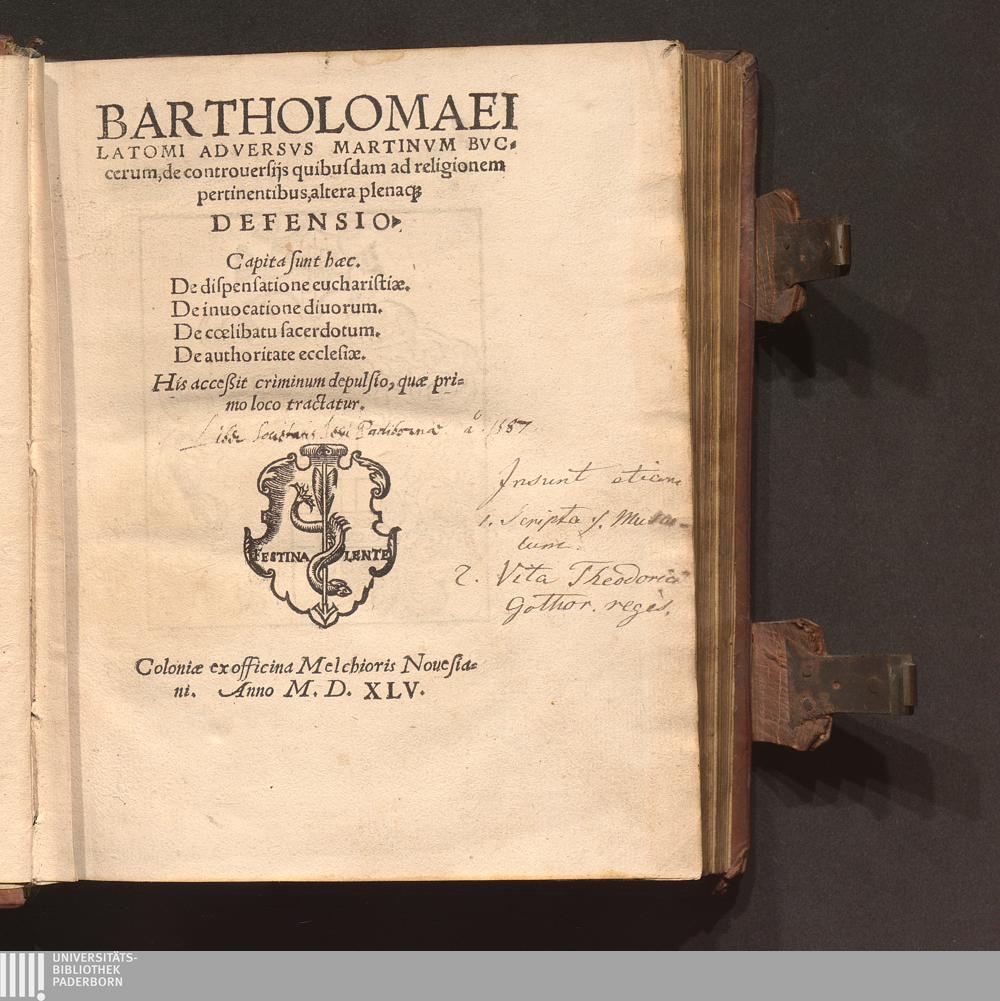 BARTHOLOMAEI
LATOMI ADVERSVS MARTINVM BVC-
cerum, de controuersijs quibusdam ad religionem
pertinentibus, altera plenaq́;
DEFENSIO.
Capita sunt hæc.
De dispensatione eucharistiæ.
De inuocatione diuorum.
De cœlibatu sacerdotum.
De authoritate ecclesiæ.
His acceßit criminum depulsio, quæ pri-
mo loco tractatur.
Liber Societatis Jesu Paderbornæ aº. 1587
Insunt etiam
1. Scripta
2. Vita Theodorici
Gothor. regis.
FESTINA LENTE
Coloniæ ex officina Melchioris Nouesia-
ni. Anno M. D. XLV.
UNIVERSITÄTS-
BIBLIOTHEK
PADERBORN